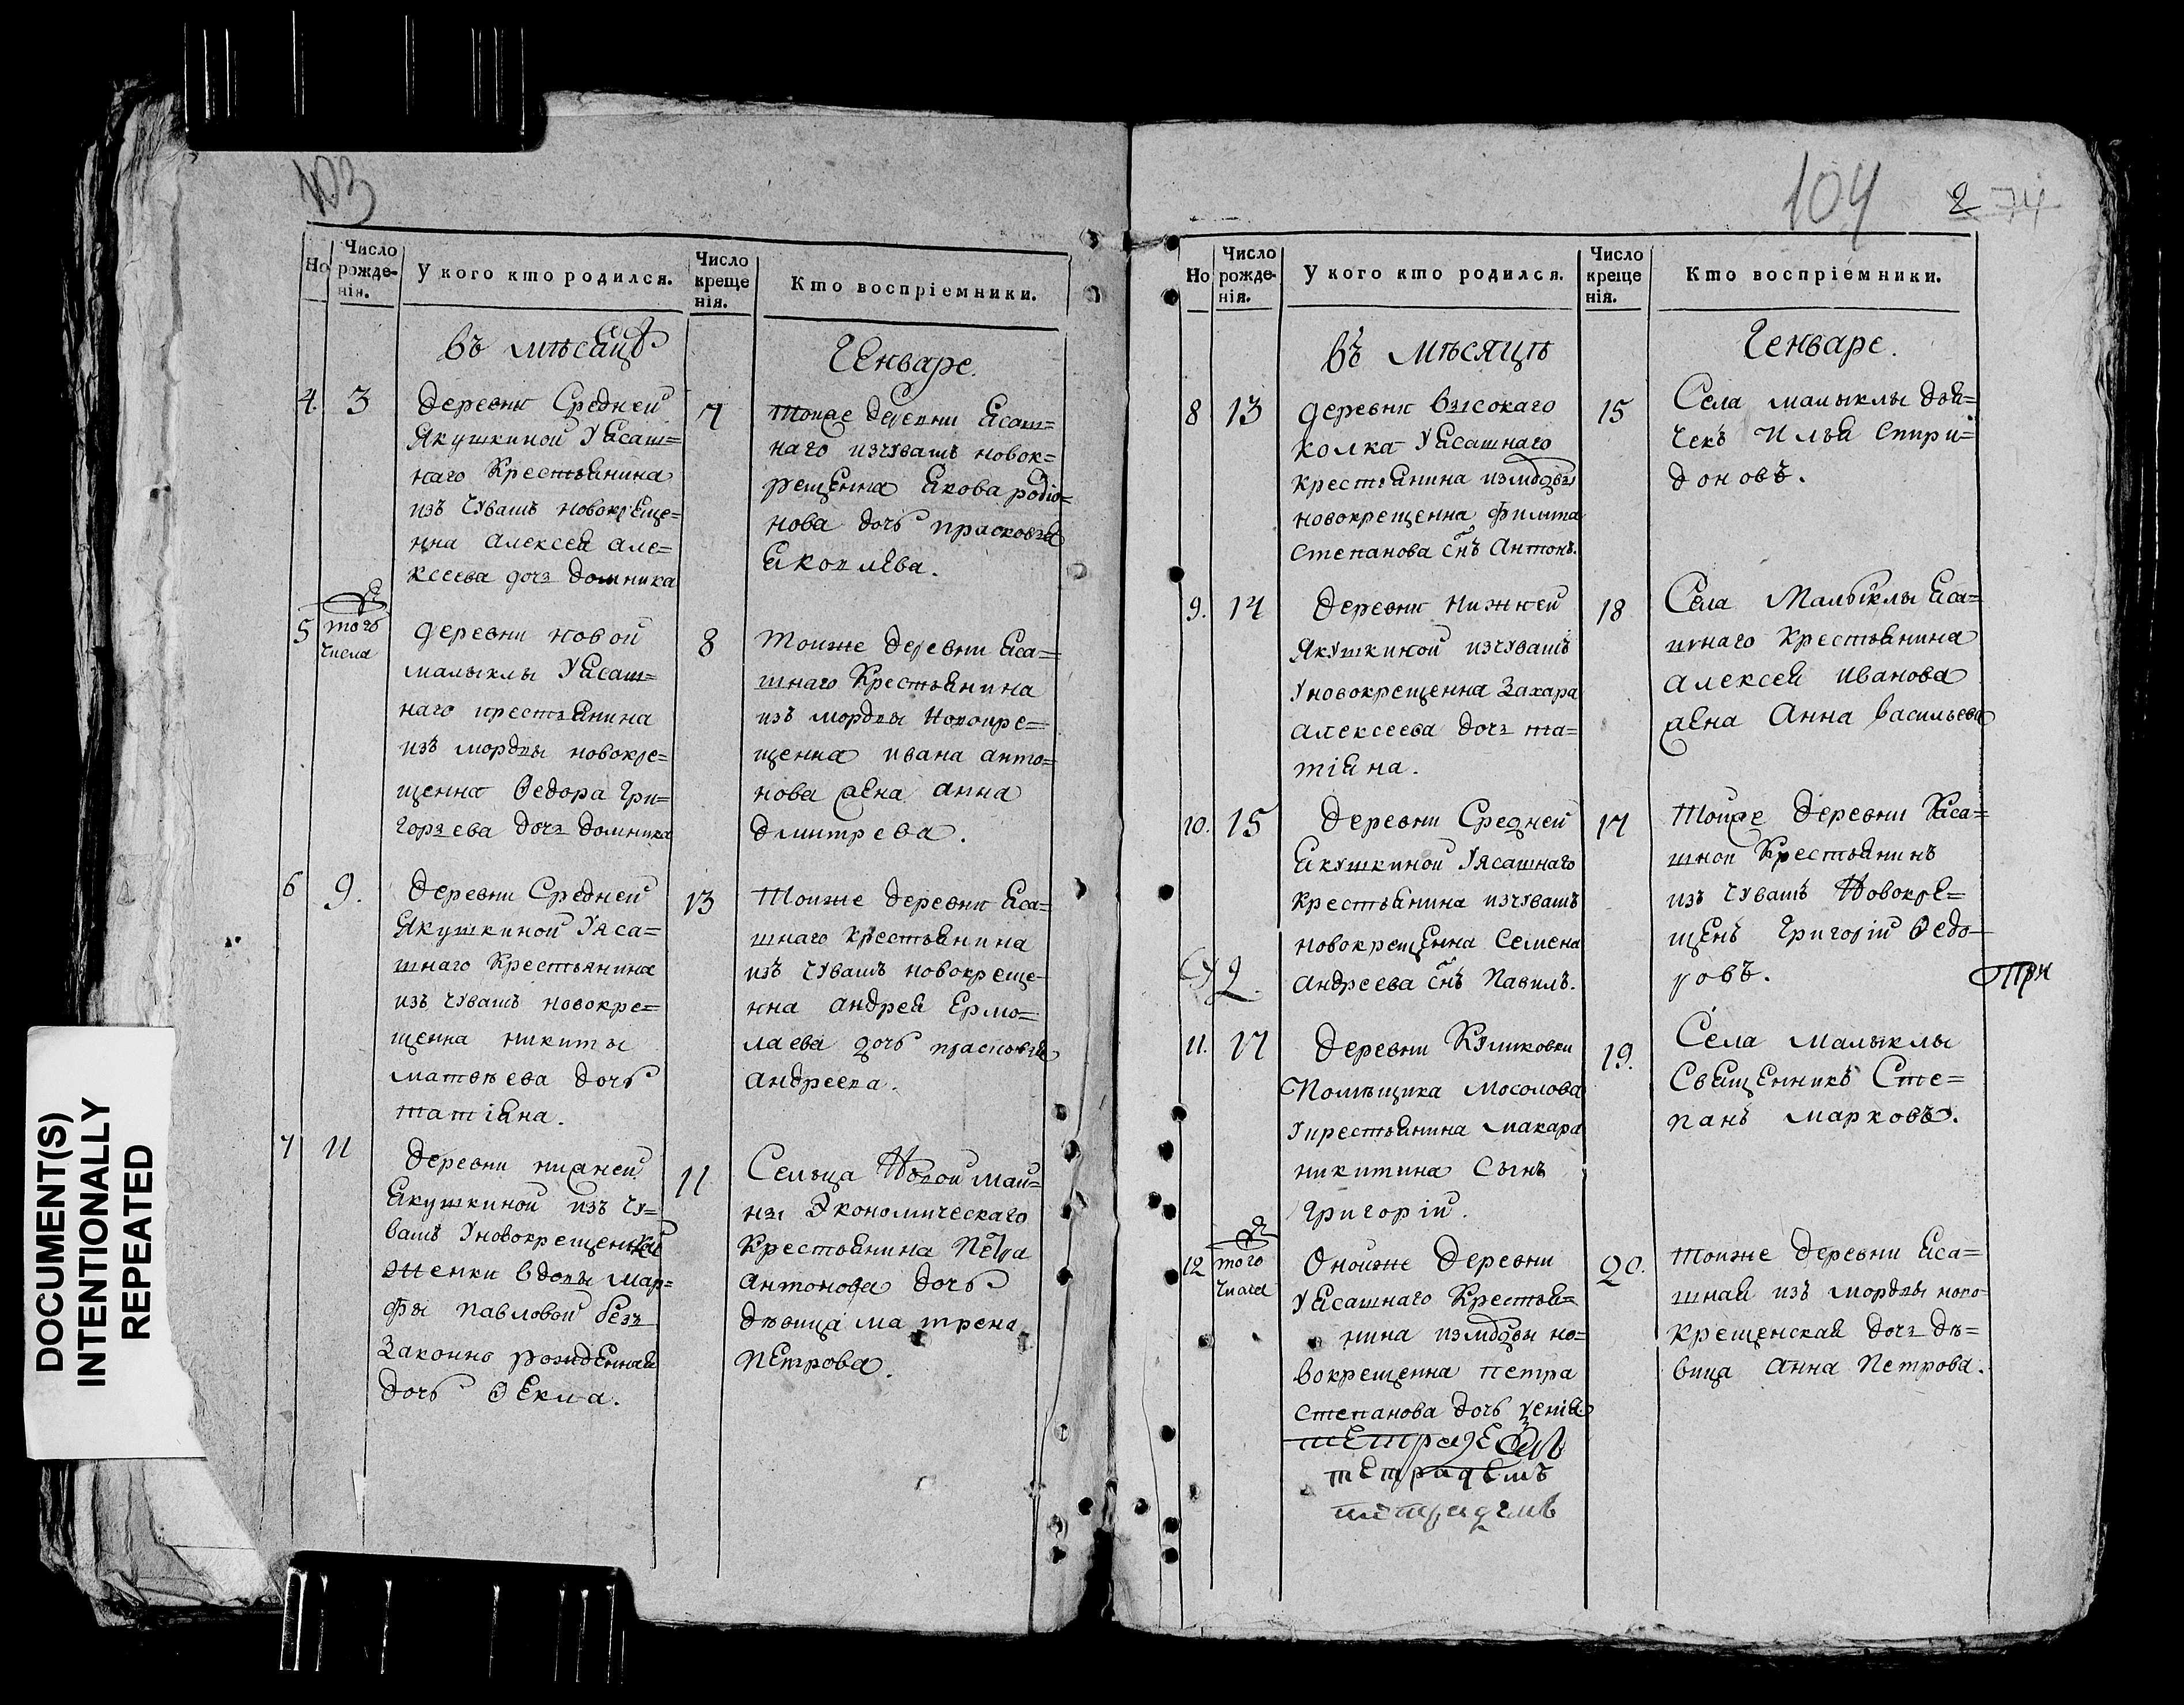 103
Но
Число рожде-нія.
У кого кто родился.
Число креще нія.
Кто воспріемники.
въ мѣсяцѣ
Генваре.
4. 3
деревни Средней
Якушкиной Уясаш=
наго Крестьянина
изъ чувашъ новокреще=
нна Алексея але=
ксеева дочь домника
7
тоиже деревни ясаш=
наго изчувашъ новок=
рещенна якова родіо=
нова дочь прасковья
яковлева.
5 того числа
деревни новой
малыклы Уясаш=
наго крестьянина
изъ мордвы новокре=
щенна Ѳедора гри=
горьева дочь домника
8
тоиже деревни яса=
шнаго Крестьянина
изъ мордвы новокре=
щенна ивана анто=
нова жена анна
дмитрева.
6 9.
деревни Средней
Якушкиной Уяса=
шнаго Крестьянина
изъ чувашъ новокре=
щенна никиты
матвѣева дочь
татіяна.
13
тоиже деревни яса=
шнаго крестьянина
изъ чувашъ новокреще-
нна андрея Ермо=
лаева дочь прасковья
андреева.
7 11
деревни нижней
якушкиной изъ чу=
вашъ Уновокрещенской
женки вдовы мар=
фы павловой безъ
законно рожденная
дочь Ѳекла.
11
Сельца Новой май=
ны Экономическаго
Крестьянина Петра
антонова дочь
дѣвица матрена
петрова.
104
2 74
Но
Число рожде-нія.
У кого кто родился.
Число креще нія.
Кто воспріемники.
въ мѣсяцѣ
Генваре.
8 13
деревни высокаго
колка Уясашнаго
крестьянина измордвы
новокрещенна филипа
степанова снъ антонъ.
15
Села малыклы дья=
чекъ илья спири=
доновъ.
9. 14
деревни нижней
якушкиной изчувашъ
Уновокрещенна захара
алексеева дочь та=
тіяна.
18
Села малыклы яса=
шнаго крестьянина
алексея иванова
жена анна васильева
10. 15
деревни Средней
якушкиной Уясашнаго
крестьянина изчувашъ
новокрещенна семена
андреева снъ павилъ.
17
тоиже деревни яса=
шной Крестьянинъ
изъ чувашъ Новокре=
щенъ григорій Ѳедо=
ровъ.
при
11. 17
деревни Куликовки
Помѣщика мосолова
Укрестьянина макара
никитина Сынъ
григорій.
19.
Села малыклы
Священникъ Сте=
панъ марковъ.
12 того числа
Оноиже деревни
Уясашнаго Крестья=
нина измордвы но=
вокрещенна петра
степанова дочь ксенія
20.
тоиже деревни яса=
шная изъ мордвы ново=
крещенская дочь дѣ=
вица анна петрова.